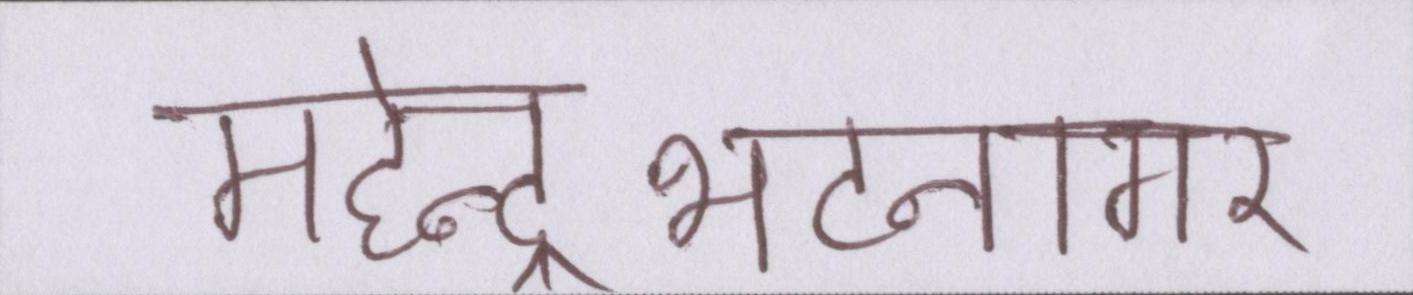 महेन्द्र भटनागर